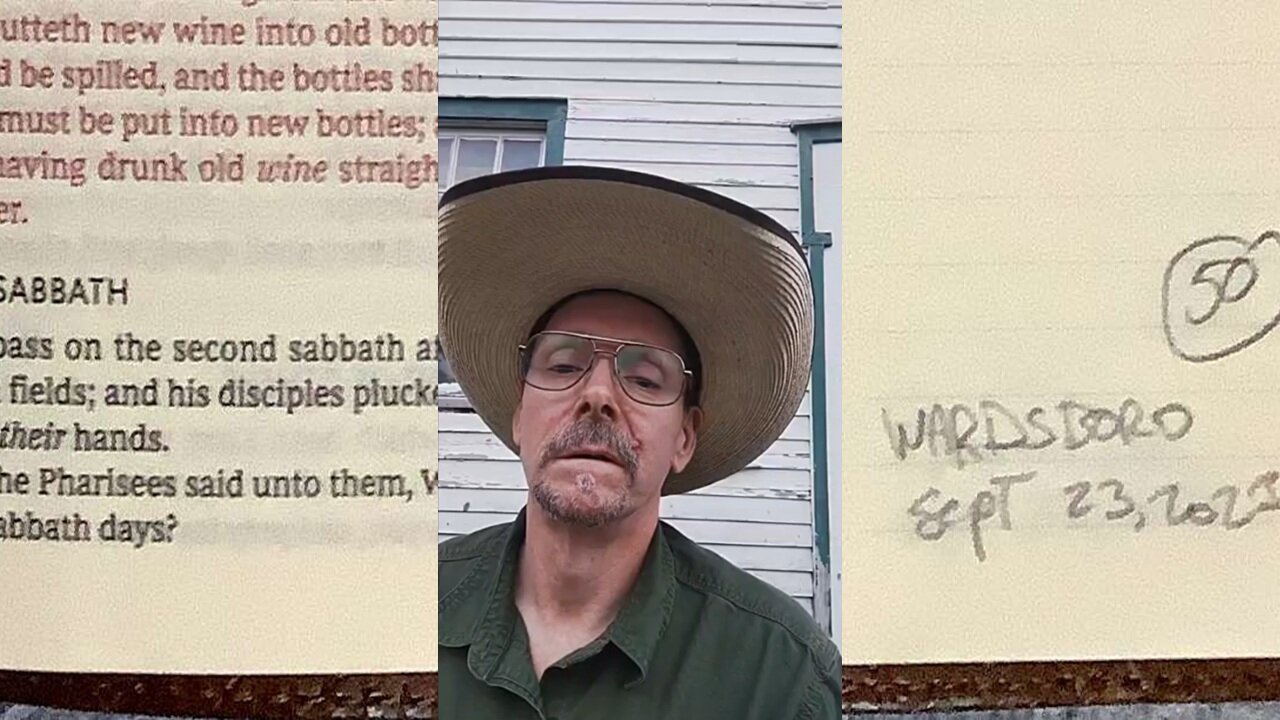 utteth new wine into old bott
d be spilled, and the bottles sh
must be put into new bottles;
aving drunk old wine straigh
er.
SABBATH
pass on the second sabbath
fields; and his disciples plucke
their hands.
he Pharisees said unto them, W
abbath days?
50
WARDSBORO
Sept 23, 202